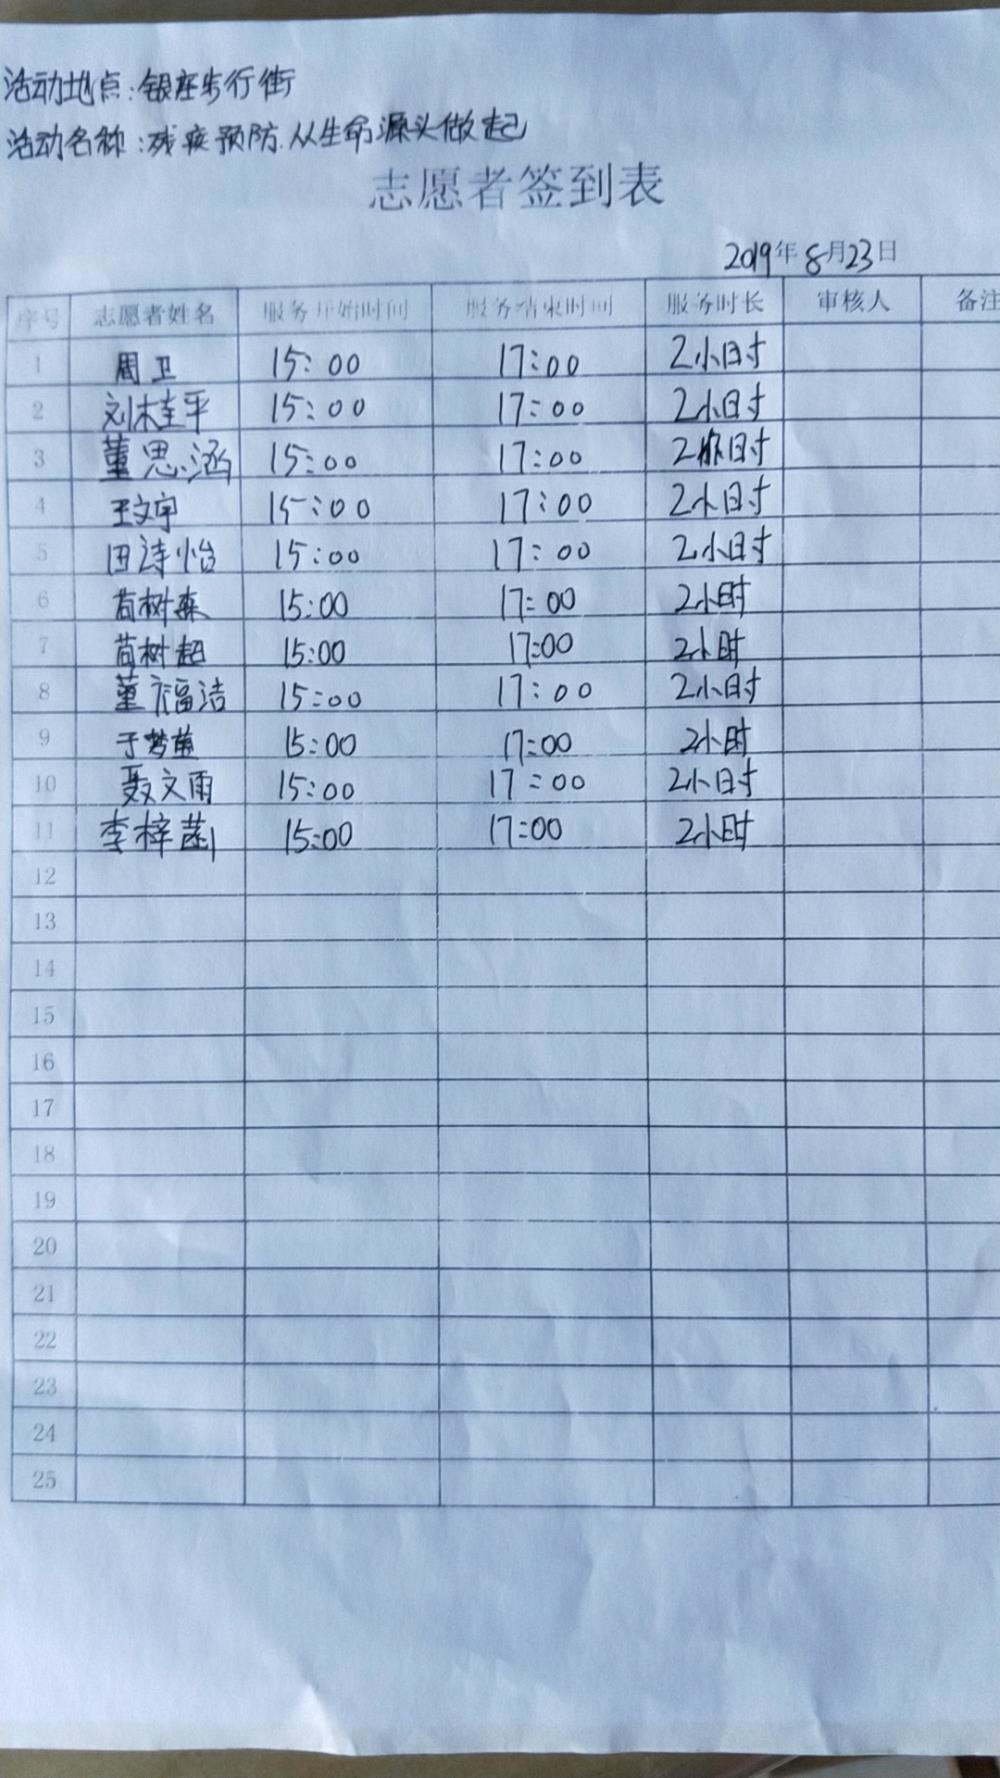 活动地点:银座步行街
活动名称:残疾预防.从生命源头做起
志愿者签到表
2019年8月23日
序号 志愿者姓名 服务开始时间 服务结束时间 服务时长 审核人 备注
1 周卫 15:00 17:00 2小时
2 刘桂平 15:00 17:00 2小时
3 董思涵 15:00 17:00 2小时
4 王文宇 15:00 17:00 2小时
5 田诗怡 15:00 17:00 2小时
6 苘树森 15:00 17:00 2小时
7 苘树超 15:00 17:00 2小时
8 董福洁 15:00 17:00 2小时
9 15:00 17:00 2小时
10 聂文雨 15:00 17:00 2小时
11 李梓菡 15:00 17:00 2小时
12
13
14
15
16
17
18
19
20
21
22
23
24
25